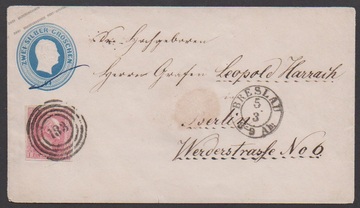 ZWEI SILBER-GROSCHEN
Hochgeboren
Herrn Grafen Leopold Harrach
in
BRESLAU
5
3
8-9 Ab.
Berlin
Werderstrasse No 6